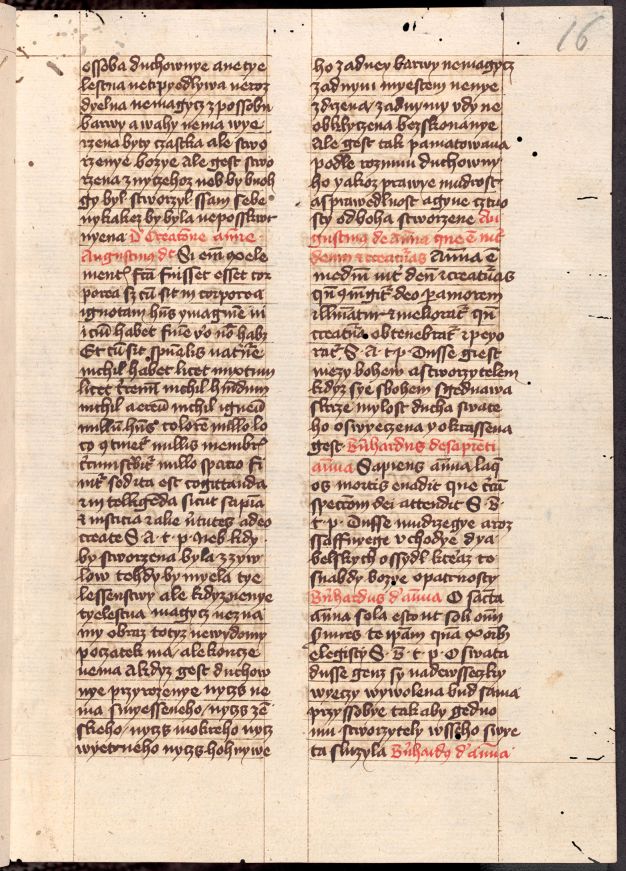 16
ossoba duchownye a netye
lestna netrpyedlywa neroz
dyelna nemagycz zpossobu
barwy a wahy nema wye
rzena byty czastka ale stwo
rzenye bozye ale gest stwo
rzena z nyczehoz neb by buoh
gy byl stworzyl ssam sebe
nykakez by byla neposskwr
nyena D Creatone anie
Augustinus dt Si em
menti fca fuisset esset cor
porea sz cu sit incorporea
ignotam hns ymagine
icium habet fine vo no habz
Et cu sit spualis
nichil habet licet
licet nichil hndum
nichil aereu nichil igneu
hns colore nullo lo
co nullis membris
nullo spacio fi
sed ita est cogittanda
et intelligeda sicut sapia
et iusticia et alie vtutes a deo
create S A t p Neb kdy
by stworzena byla z zyw
low tehdy by myela tye
lessenstwy ale kdyz nenye
tyelestna magycz nezna
my obraz totyz newydomy
poczatek ma ale koncze
nema A kdyz gest duchow
nye przyrozenye nyczs ne
ma smyesseneho nyczs ze
skeho nyczs mokreho nycz
wyetrneho nyczs hohnywe
ho zadney barwy nemagycz
zadnym myestem nenye
zdrzena zadnymy vdy ne
obkliczena bez skonanye
ale gest tak pamatowana
podle rozumu duchowny
ho yakoz prawye mudrost
a sprawedlnost a gyne cztno
sty od boha stworzene Au
gustinus de anna que e int
deum et creaturas Anna e
medium int deu et creaturas
qn deo p amorem
illuiatur et meliorat qn
creatura obtenebrat et peyo
rat S A t p Dusse gest
mezy bohem a stworzytelem
kdyz sye s bohem sgednawa
skrze mylost ducha swate
ho oswyeczena y okrassena
gest Bnhardus de sapienti
anna Sapiens anna laq
os mortis euadit que
spectum dei attendit S B
t p Dusse mudrzegye a roz
ssaffnyege vchodye dya
belskych ossydl kteraz to
snabdy bozye opatrnosty
Bnhardus d anna O sancta
anna sola esto ut soli omi
te ipam qua
elegisti S B t p O swata
dusse genz sy nadewsseczky
wyeczy wywolena bud sama
przyssobye tak aby gedno
mu stworzytely wsseho swye
ta sluzyla Bnhardus d anna